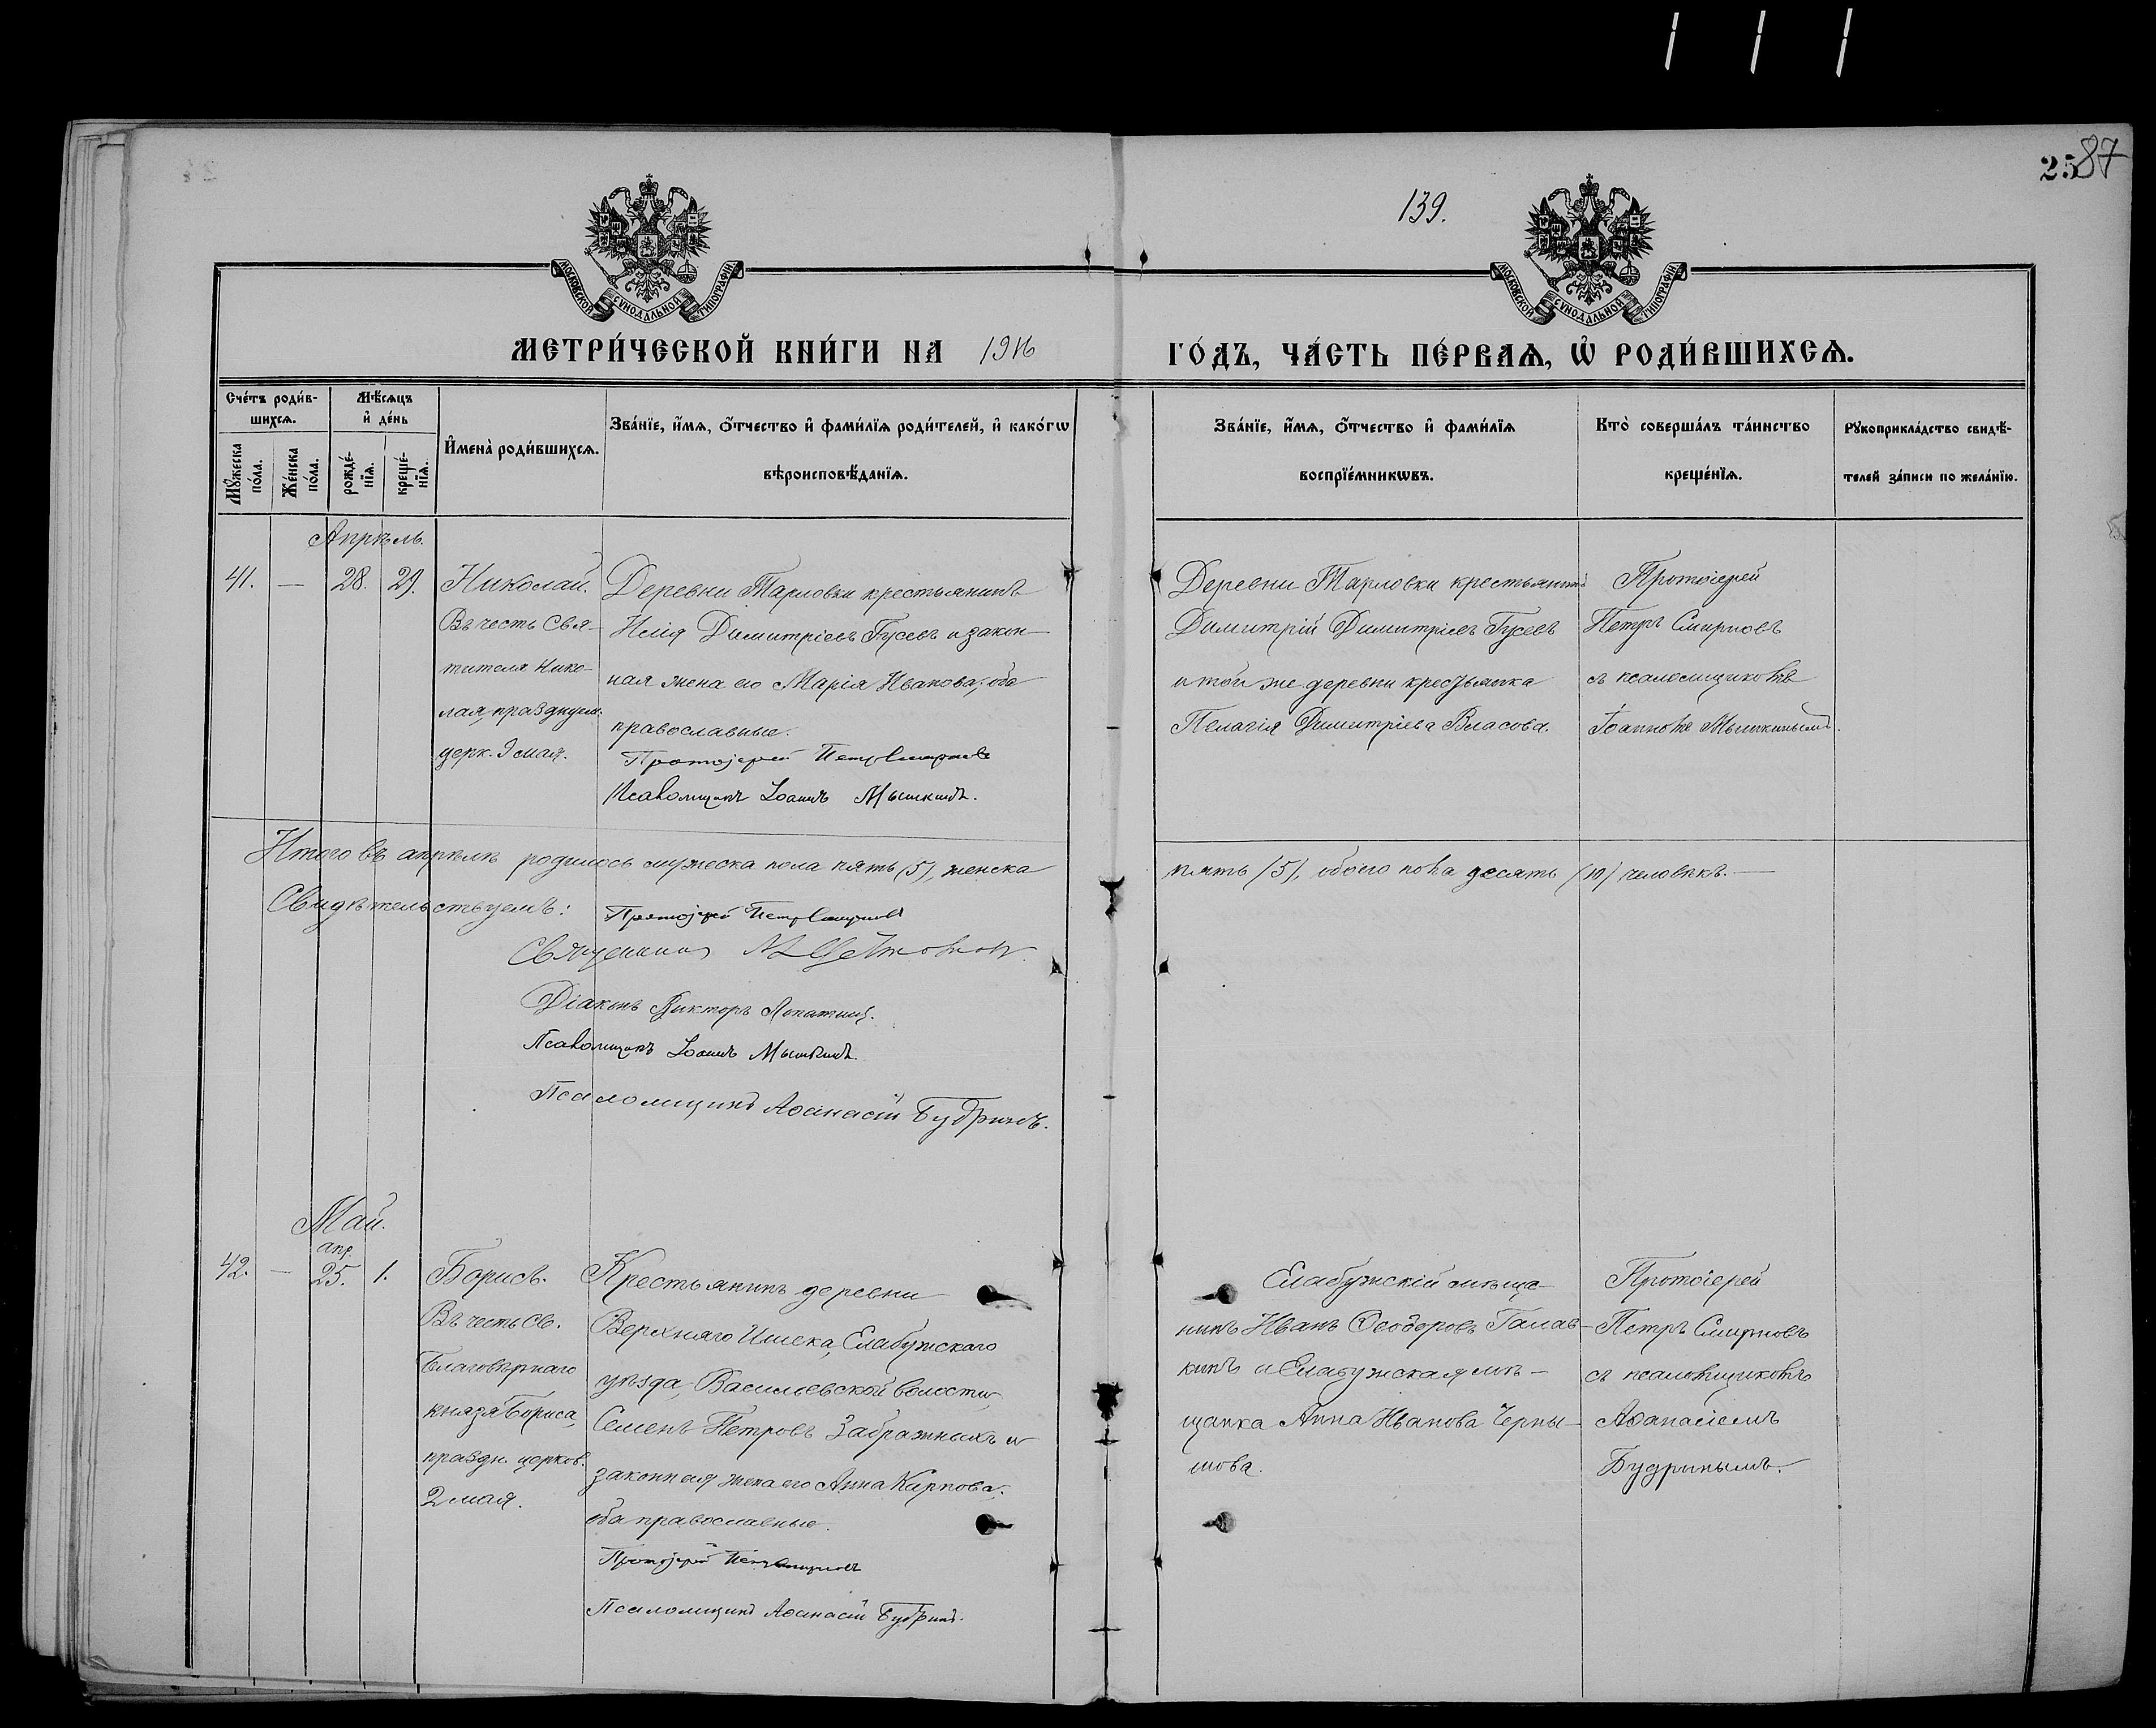 2587
139.
МОСКОВСКОЙ СѴНОДАЛЬНОЙ ТИПОГРАФІИ.
МОСКОВСКОЙ СѴНОДАЛЬНОЙ ТИПОГРАФІИ.
МЕТРИ́ЧЕСКОЙ КНИ́ГИ НА 1916 ГО́ДЪ, ЧА́СТЬ ПЕ́РВАѦ, Ѡ҆ РОДИ́ВШИХСѦ.
Сче́тъ роди́в-
шихсѧ.
Мꙋ́жеска по́ла.
Же́нска по́ла.
Мѣ́сѧцъ
и҆ де́нь
рожде́-
нїѧ.
креще́-
нїѧ.
И҆мена̀ роди́вшихсѧ.
Зва́нїе, и҆́мѧ, ѻ҆́тчество и҆ фами́лїѧ роди́телей, и҆ како́гѡ
вѣроисповѣ́данїѧ.
Зва́нїе, и҆́мѧ, ѻ҆́тчество и҆ фами́лїѧ
воспрїе́мникѡвъ.
Кто̀ соверша́лъ та́инство
креще́нїѧ.
Рꙋкоприкла́дство свидѣ́-
телей за́писи по жела́нїю.
Апрѣль.
41. — 28. 29.
Николай.
Въ честь Свя-
тителя Нико-
лая, празднуем.
церк. 9 мая.
Деревни Тарловки крестьянинъ
Илія Димитріевъ Гусевъ и закон-
ная жена его Марія Иванова; оба
православные.
Протоіерей Петръ Смирновъ
Псаломщикъ Іоаннъ Мышкинъ.
Деревни Тарловки крестьянинъ
Димитрій Димитріевъ Гусевъ
и той же деревни крестьянка
Пелагія Димитріева Власова.
Протоіерей
Петръ Смирновъ
съ псаломщикомъ
Іоанномъ Мышкинымъ.
Итого въ апрѣлѣ родилось мужеска пола пять (5), женска пять (5), обоего пола десять (10) человѣкъ. —
Свидѣтельствуемъ: Протоіерей Петръ Смирновъ
Священникъ
Діаконъ Викторъ Лопатинъ.
Псаломщикъ Іоаннъ Мышкинъ.
Псаломщикъ Аѳанасій Будринъ.
Май.
апр.
42. — 25. 1.
Борисъ.
Въ честь Св.
Благовѣрнаго
князя Бориса,
праздн. церков.
2 мая.
Крестьянинъ деревни
Верхняго Ишека, Елабужскаго
уѣзда, Васильевской волости,
Семенъ Петровъ Забражныхъ и
законная жена его Анна Карпова;
оба православные.
Протоіерей Петръ Смирновъ
Псаломщикъ Аѳанасій Будринъ.
Елабужскій мѣща-
нинъ Иванъ Ѳеодоровъ Галав-
кинъ и Елабужская мѣ-
щанка Анна Иванова Черны-
шова.
Протоіерей
Петръ Смирновъ
съ псаломщикомъ
Аѳанасіемъ
Будринымъ.